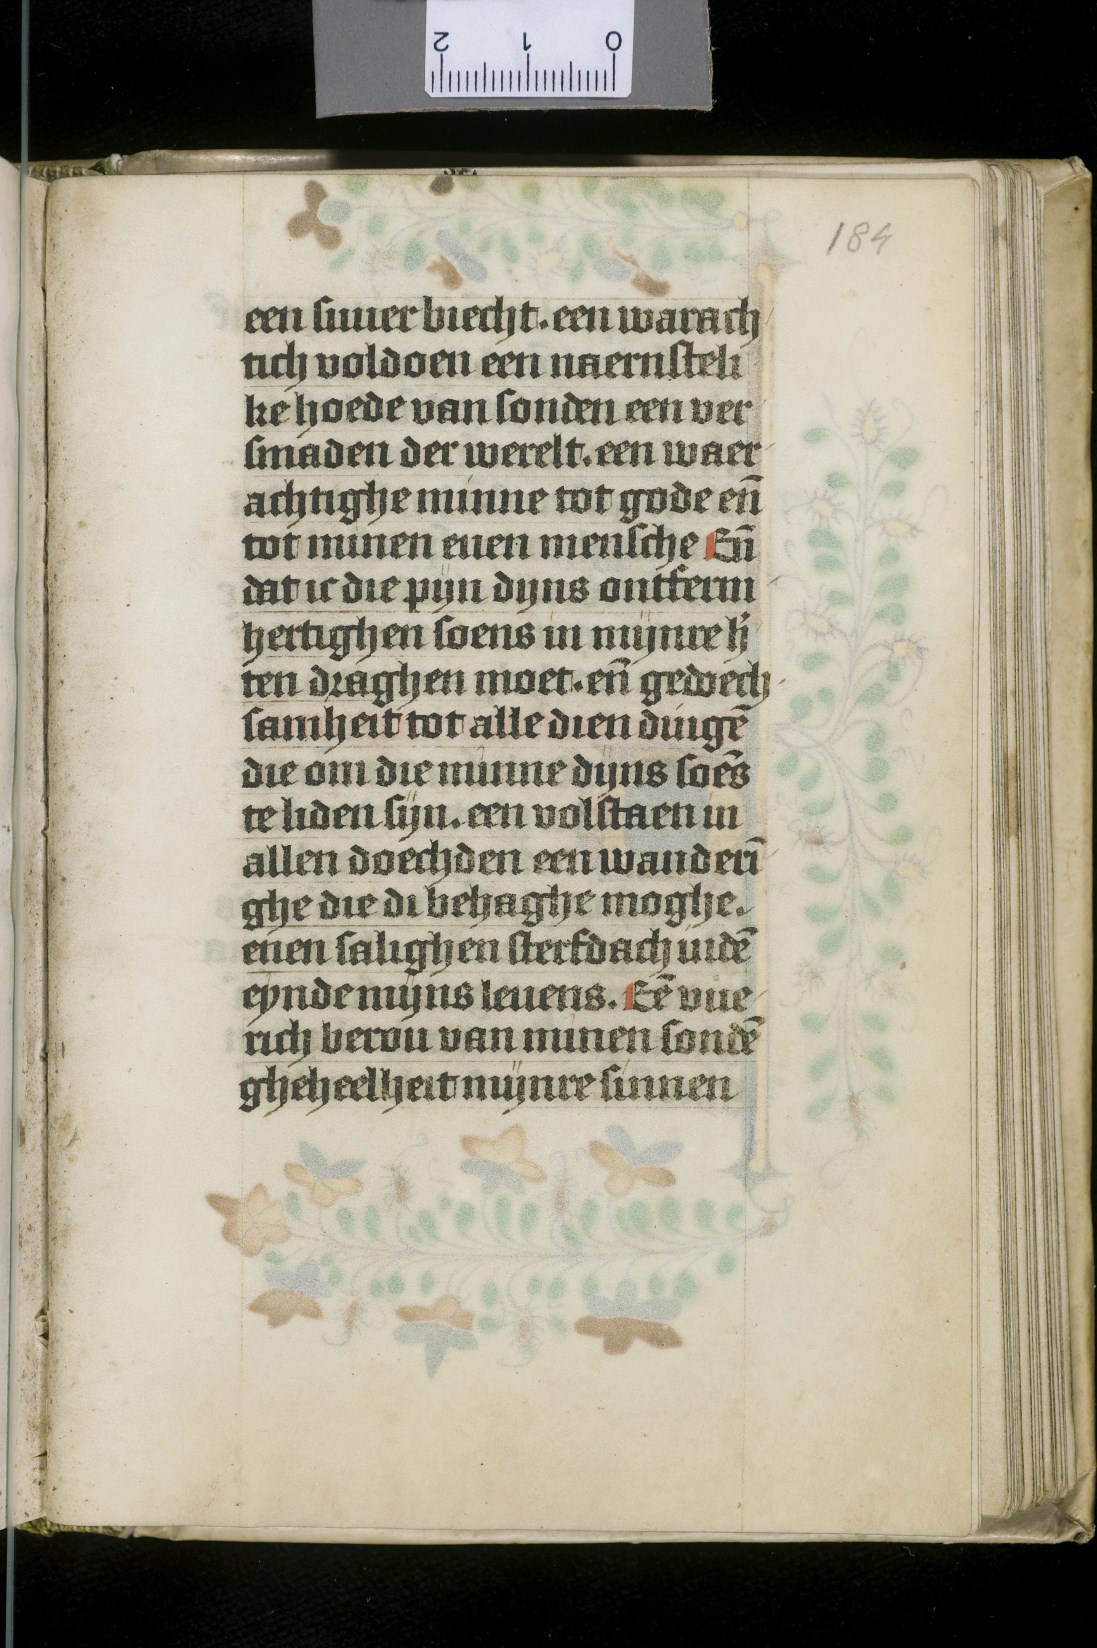 184
een suuer biecht. een warach
tich voldoen een naernsteli
ke hoede van sonden een ver
smaden der werelt. een waer
achtighe minne tot gode en̄
tot minen euen mensche En̄
dat ic die pijn dijns ontferm
hertighen soens in mijnre h̄
ten draghen moet. en̄ gedoech
samheit tot alle dien dingē
die om die minne dijns soēs
te liden sijn. een volstaen in
allen doechden een wanderī
ghe die di behaghe moghe.
enen salighen sterfdach indē
eynde mijns leuens. Eē vue
rich berou van minen sondē
gheheelheit mijnre sinnen
0 1 2